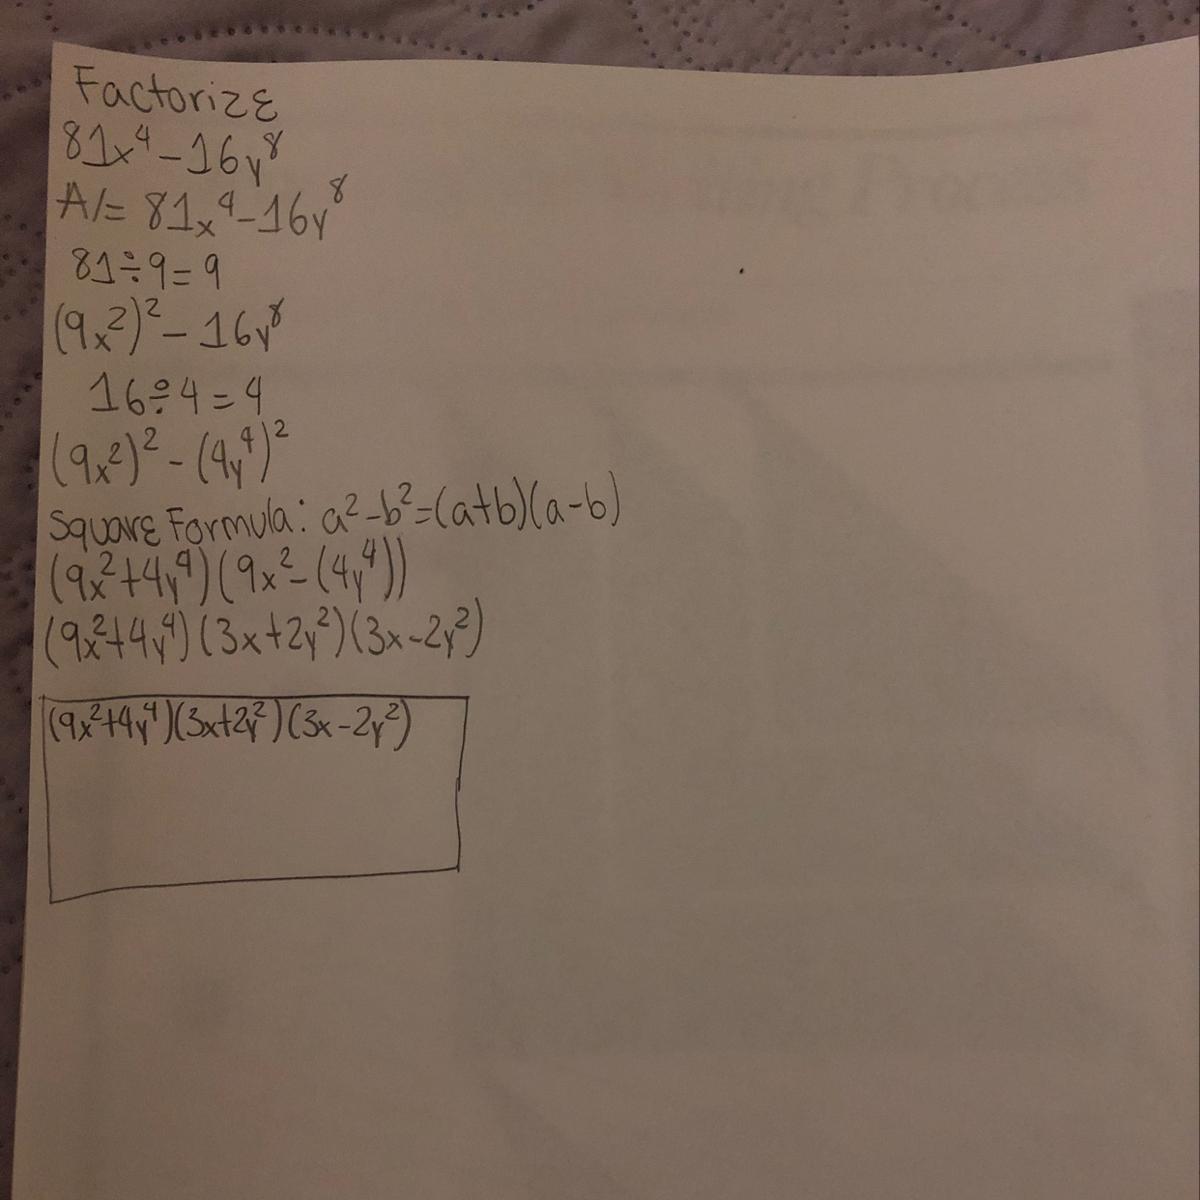 Factorize
81x⁴-16y⁸
A/= 81x⁴-16y⁸
81÷9=9
(9x²)²-16y⁸
16÷4=4
(9x²)²-(4y⁴)²
Square Formula: a²-b²=(a+b)(a-b)
(9x²+4y⁴)(9x²-(4y⁴))
(9x²+4y⁴)(3x+2y²)(3x-2y²)
(9x²+4y⁴)(3x+2y²)(3x-2y²)